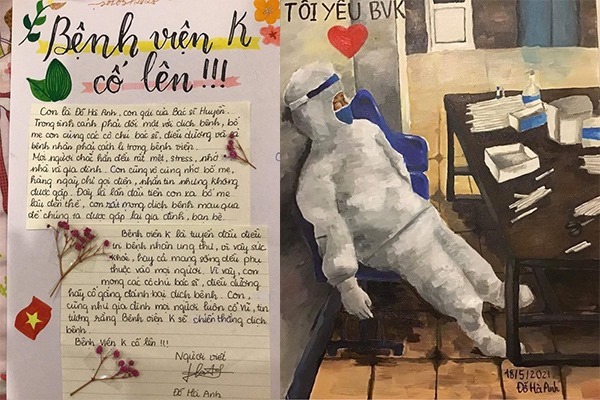 Bệnh viện K
cố lên !!!
Con là Đỗ Hà Anh, con gái của Bác sĩ Huyền.
Trong tình cảnh phải đối mặt với dịch bệnh, bố
mẹ con cùng các cô chú bác sĩ, điều dưỡng và cả
bệnh nhân phải cách li trong bệnh viện.
Mọi người chắc hẳn đều rất mệt, stress, nhớ
nhà và gia đình. Con cũng vô cùng nhớ bố mẹ,
hàng ngày chỉ gọi điện, nhắn tin nhưng không
được gặp. Đây là lần đầu tiên con xa bố mẹ
lâu đến thế, con rất mong dịch bệnh mau qua
để chúng ta được gặp lại gia đình, bạn bè.
Bệnh viện K là tuyến đầu điều
trị bệnh nhân ung thư, vì vậy sức
khỏe, hay cả mạng sống đều phụ
thuộc vào mọi người. Vì vậy, con
mong các cô chú bác sĩ, điều dưỡng
hãy cố gắng đánh bại dịch bệnh. Con
cũng như gia đình mọi người luôn cổ vũ, tin
tưởng rằng Bệnh viện K sẽ chiến thắng dịch
bệnh.
Bệnh viện K cố lên !!!
Người viết
Đỗ Hà Anh
TÔI YÊU BVK
18/5/2021
Đỗ Hà Anh